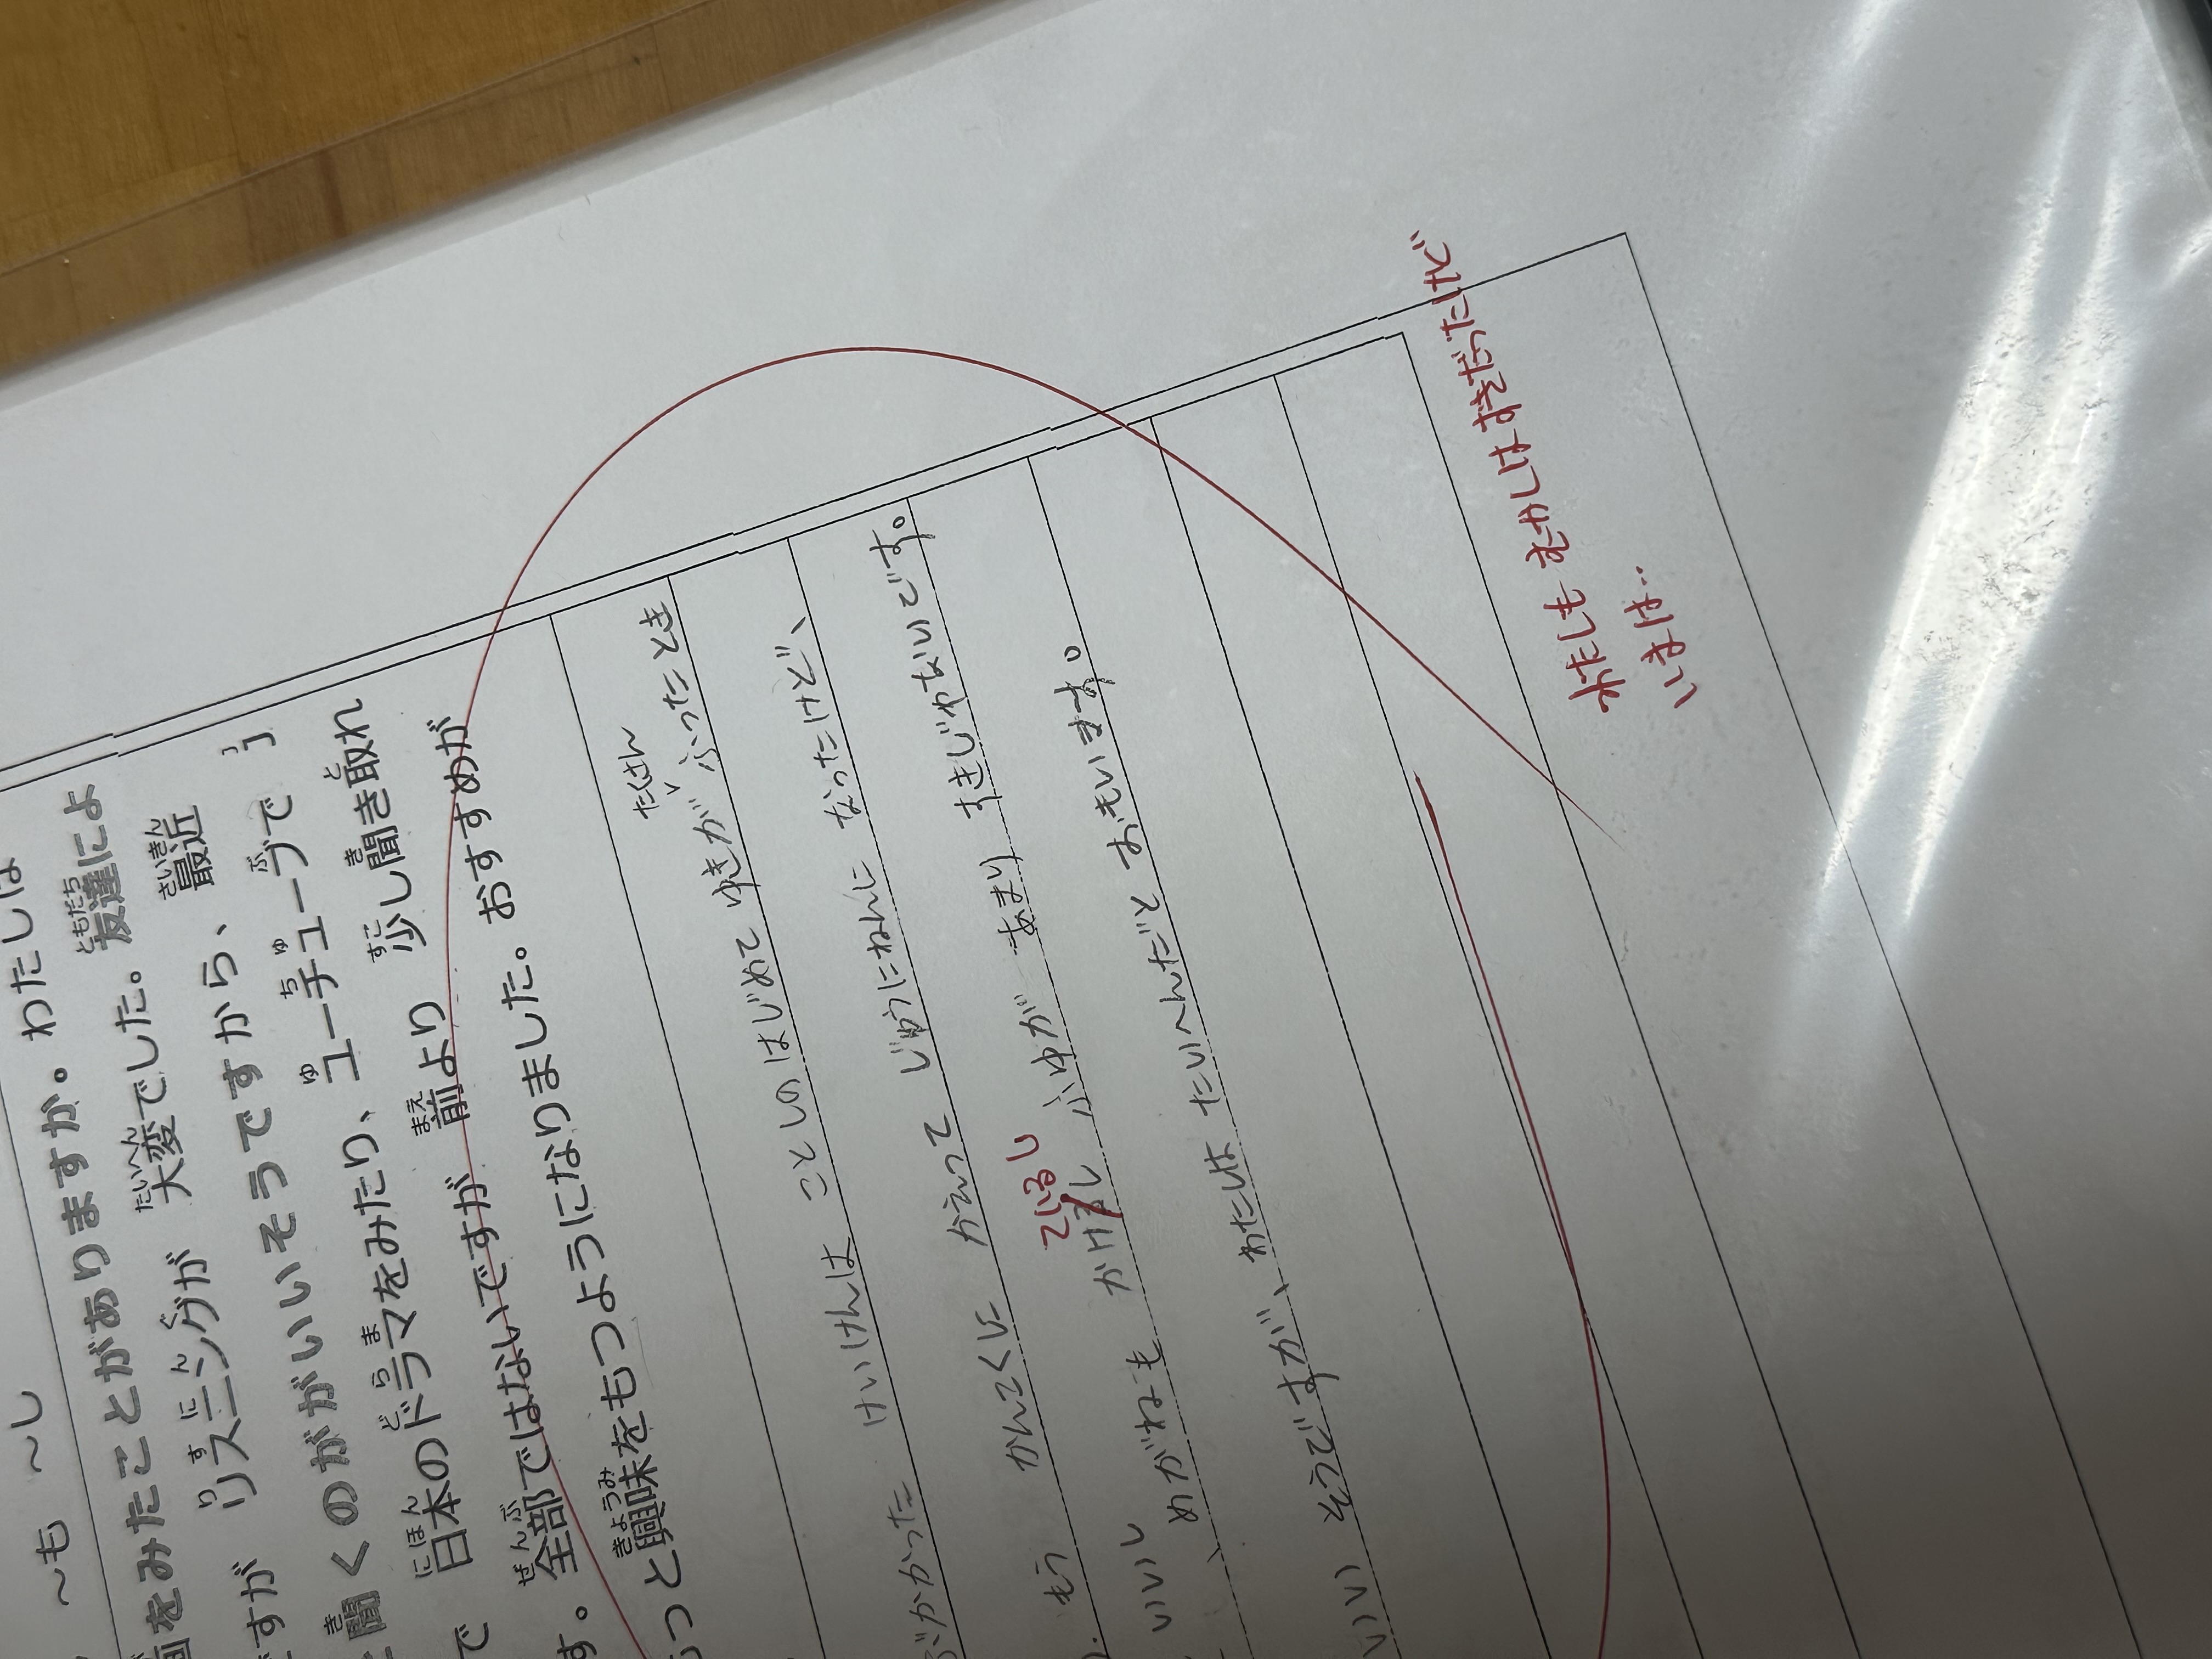 〜も 〜し
画をみたことがありますか。わたしは
すが リスニングが 大変でした。友達によ
聞くのががいいそうですから、最近
で 日本のドラマをみたり、ユーチューブで
す。全部ではないですが 前より 少し聞き取れ
もっと興味をもつようになりました。おすすめが
たくさん
かかった けいけんは ことしのはじめて ゆきが ふったとき
もう かんこくに かえって じゅうにねんに なったけど、
ているし
いいし
めがねも かけるし ふゆが あまり すきじゃないです。
いい そうですが、わたしは たいへんだと おもいます。
わたしも むかしは すきだったけど
いまは‥